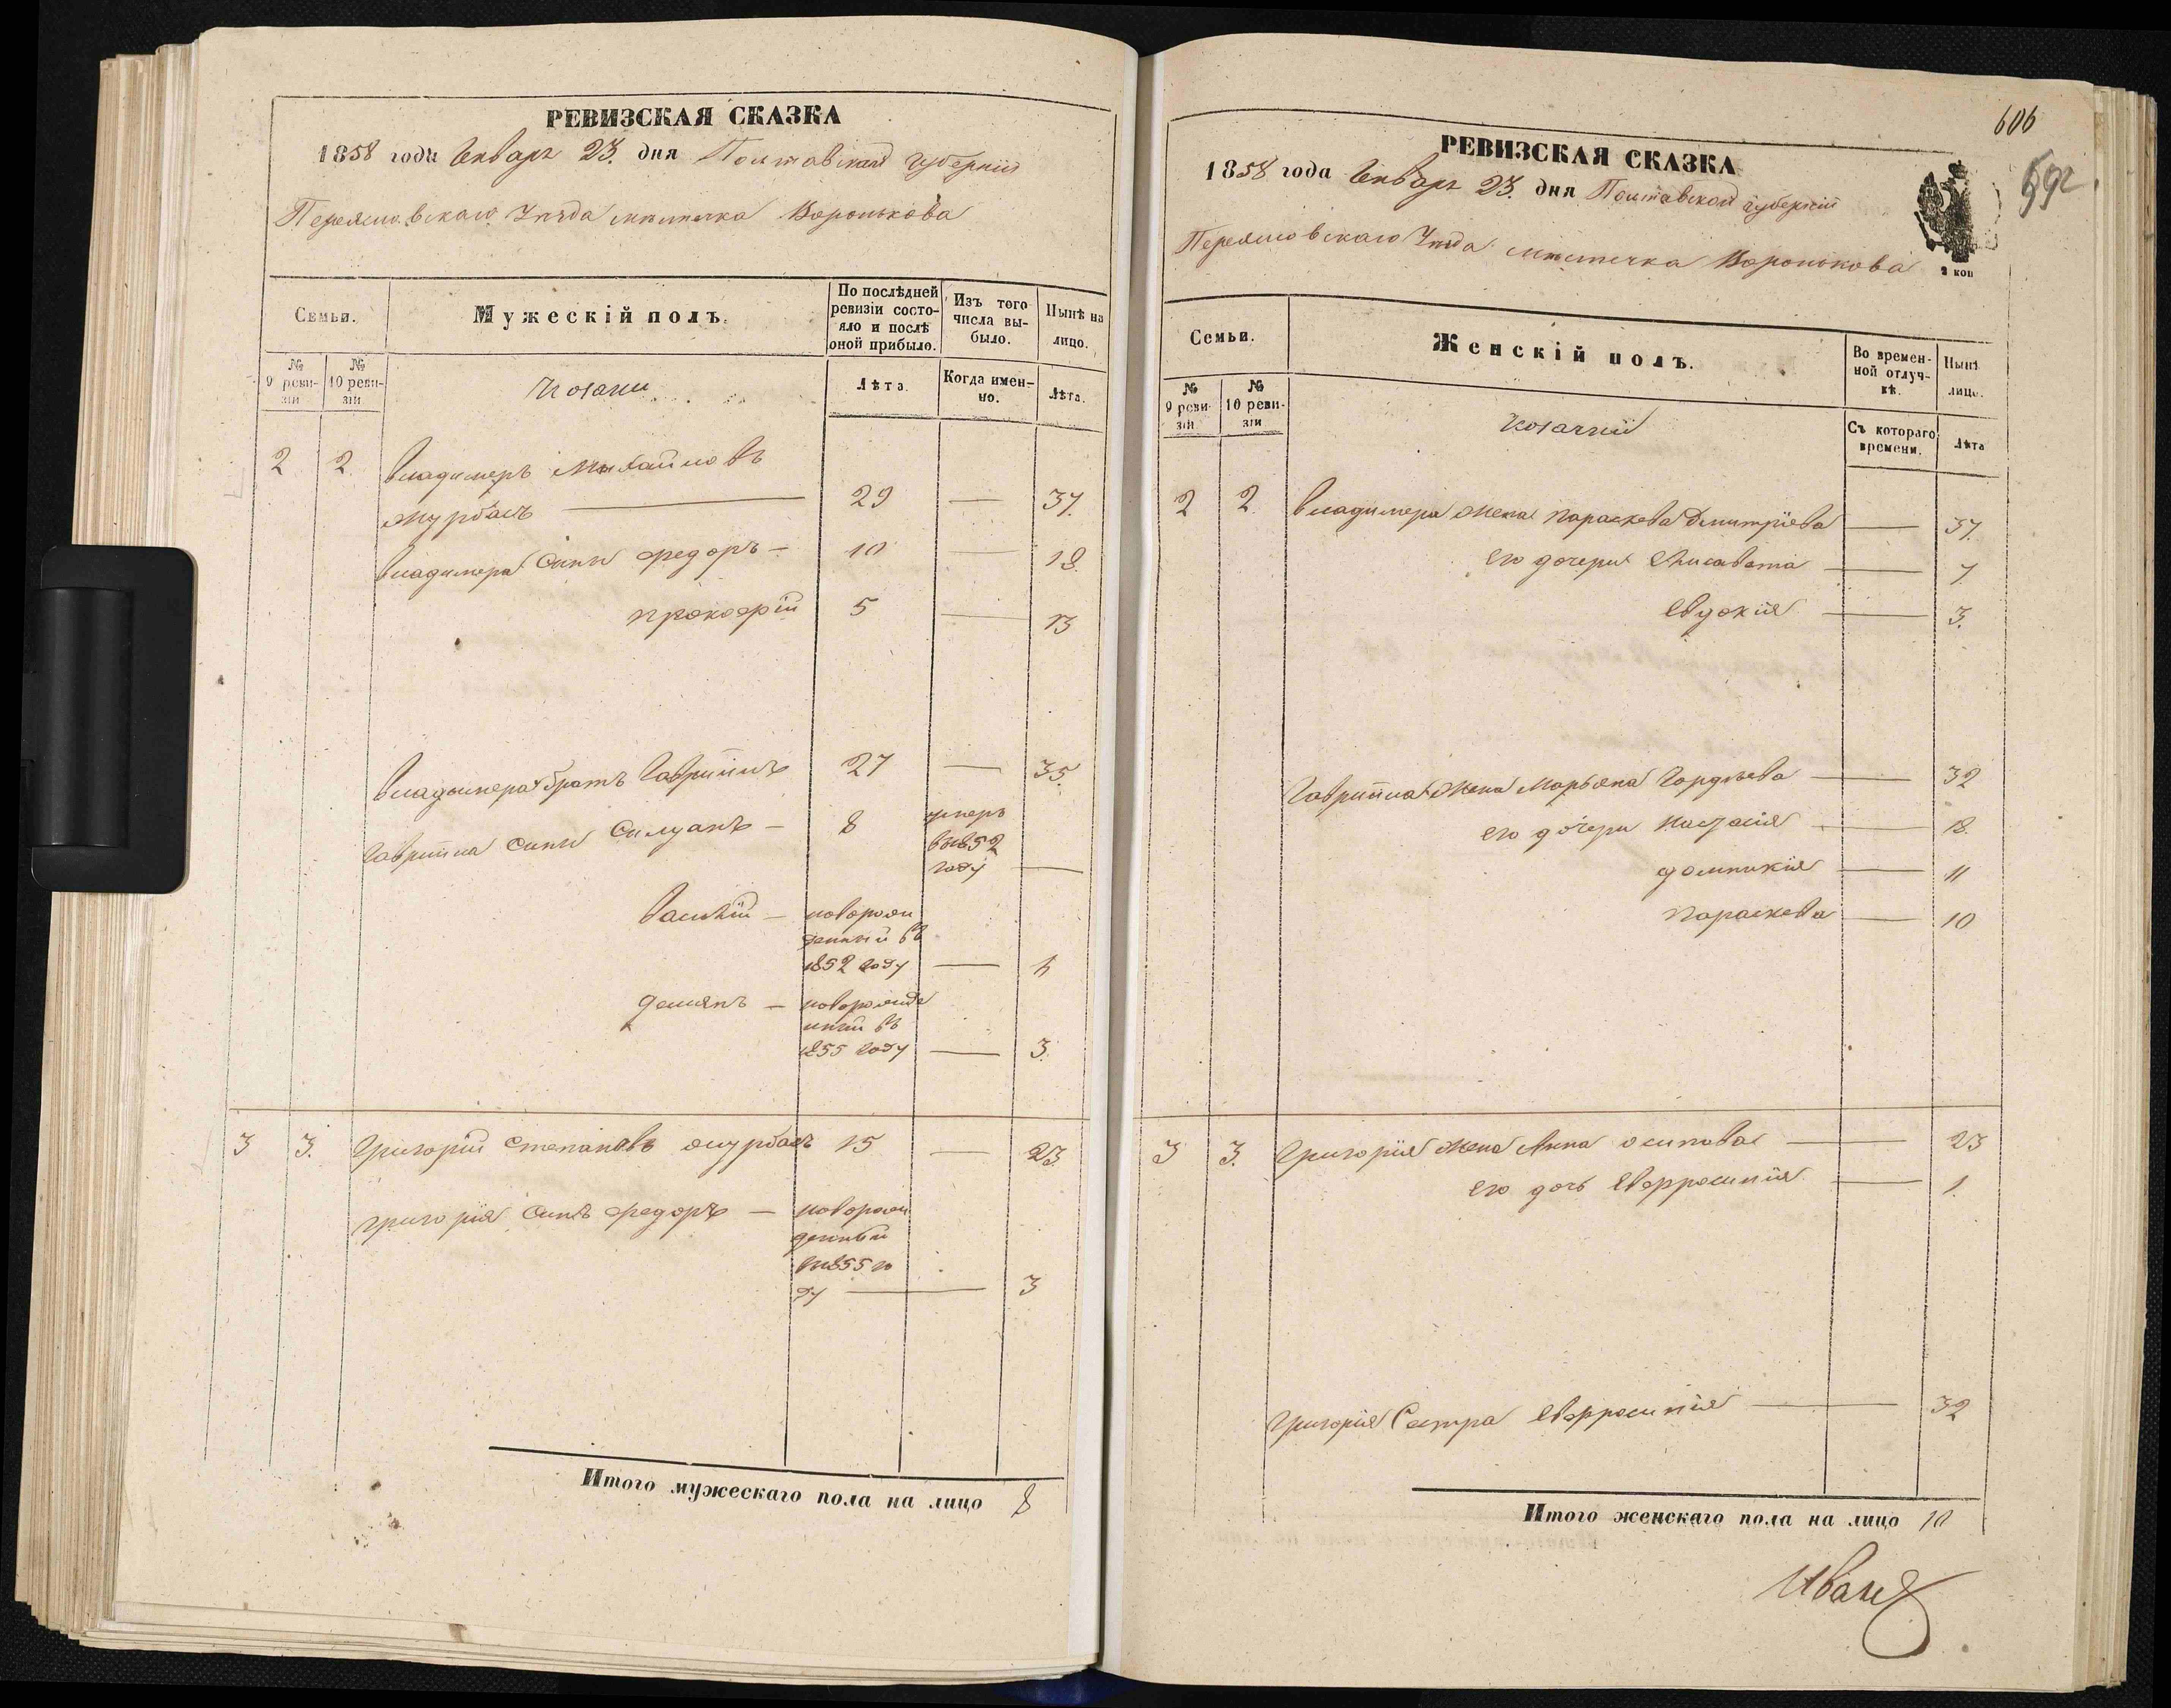 РЕВИЗСКАЯ СКАЗКА
1858 года Генваря 23. дня Полтавской губерніи
Переяславскаго Уезда местечка Воронькова
Семьи.
Мужескій полъ.
По послѣдней ревизіи состояло и послѣ оной прибыло.
Изъ того числа выбыло.
Нынѣ на лицо.
№ 9 ревизіи
№ 10 ревизіи
Козаки
Лѣта.
Когда именно.
Лѣта.
2 2. Владимеръ Михайловъ
Журбасъ 29 — 37.
Владимера Сины Федоръ — 10 — 18.
Прокофій 5 — 13
Владимера братъ Гавріилъ 27 — 35.
Гавріила Сины Силуанъ — 8 умеръ
в 1852
году —
Василій —новорож
денный въ
1852 году — 6
Демянъ — новорожде
нный въ
1855 году — 3.
3 3. Григорій Степановъ Журбасъ 15 — 23.
Григорія Синъ Федоръ — новорож
денный
в 1855 го
ду — 3
Итого мужескаго пола на лицо 8
606
592.
РЕВИЗСКАЯ СКАЗКА
1858 года Генваря 23. дня Полтавской губерніи
Переяславскаго Уезда местечка Воронькова
2 коп
Семьи.
Женскій полъ.
Во временной отлучкѣ.
Нынѣ лицо.
№ 9 ревизіи
№ 10 ревизіи
Козачки
Съ котораго времени.
Лѣта
2 2. Владимера Жена Параскева Дмитріева — 37.
его дочери Елисавета — 7
Евдокія — 3.
Гавріила Жена Марьяна Гордѣева — 32
его дочери Настасія — 18.
Домникія — 11
Параскева — 10
3 3. Григорія Жена Анна Осипова — 23
его дочь Евфросинія — 1.
Григорія Сестра Евфросинія — 32
Итого женскаго пола на лицо 10
Иванъ